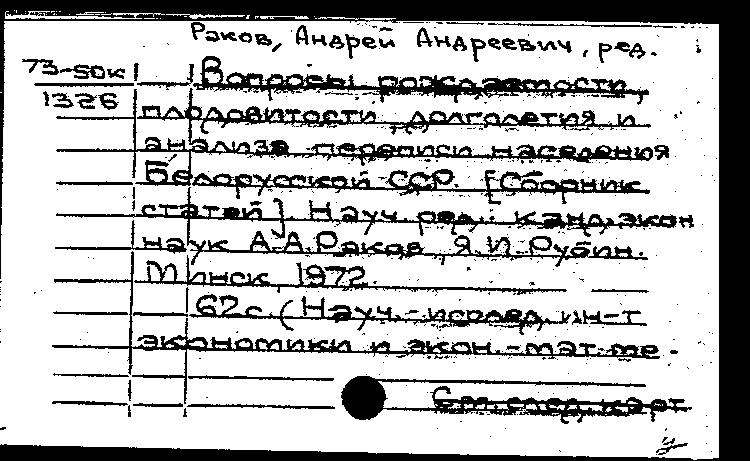 Раков, Андрей Андреевич, ред.
73-50к Вопросы рождаемости,
1326 плодовитости, долголетия и
анализа переписи населения
Белорусской ССР. [Сборник
статей]. Науч. ред.: канд. экон
наук А.А. Раков, Я.И. Рубин.
Минск, 1972.
62 с. (Науч.-исслед. ин-т
экономики и экон.-мат. ме-
См. след. карт